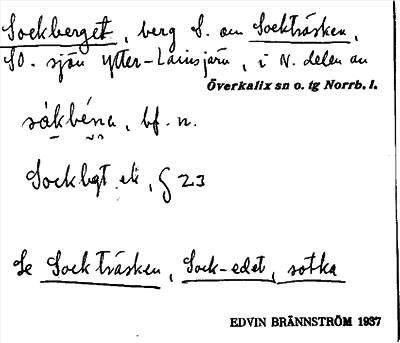 Sockberget, berg S. om Sockträsken,
SO. sjön Ytter-Lainsjärv, i N. delen av
Överkalix sn o. tg Norrb. l.
såkbéna, bf. n.
Sockbgt ek, § 23
Se Sockträsken, Sock-edet, sotka
EDVIN BRÄNNSTRÖM 1937